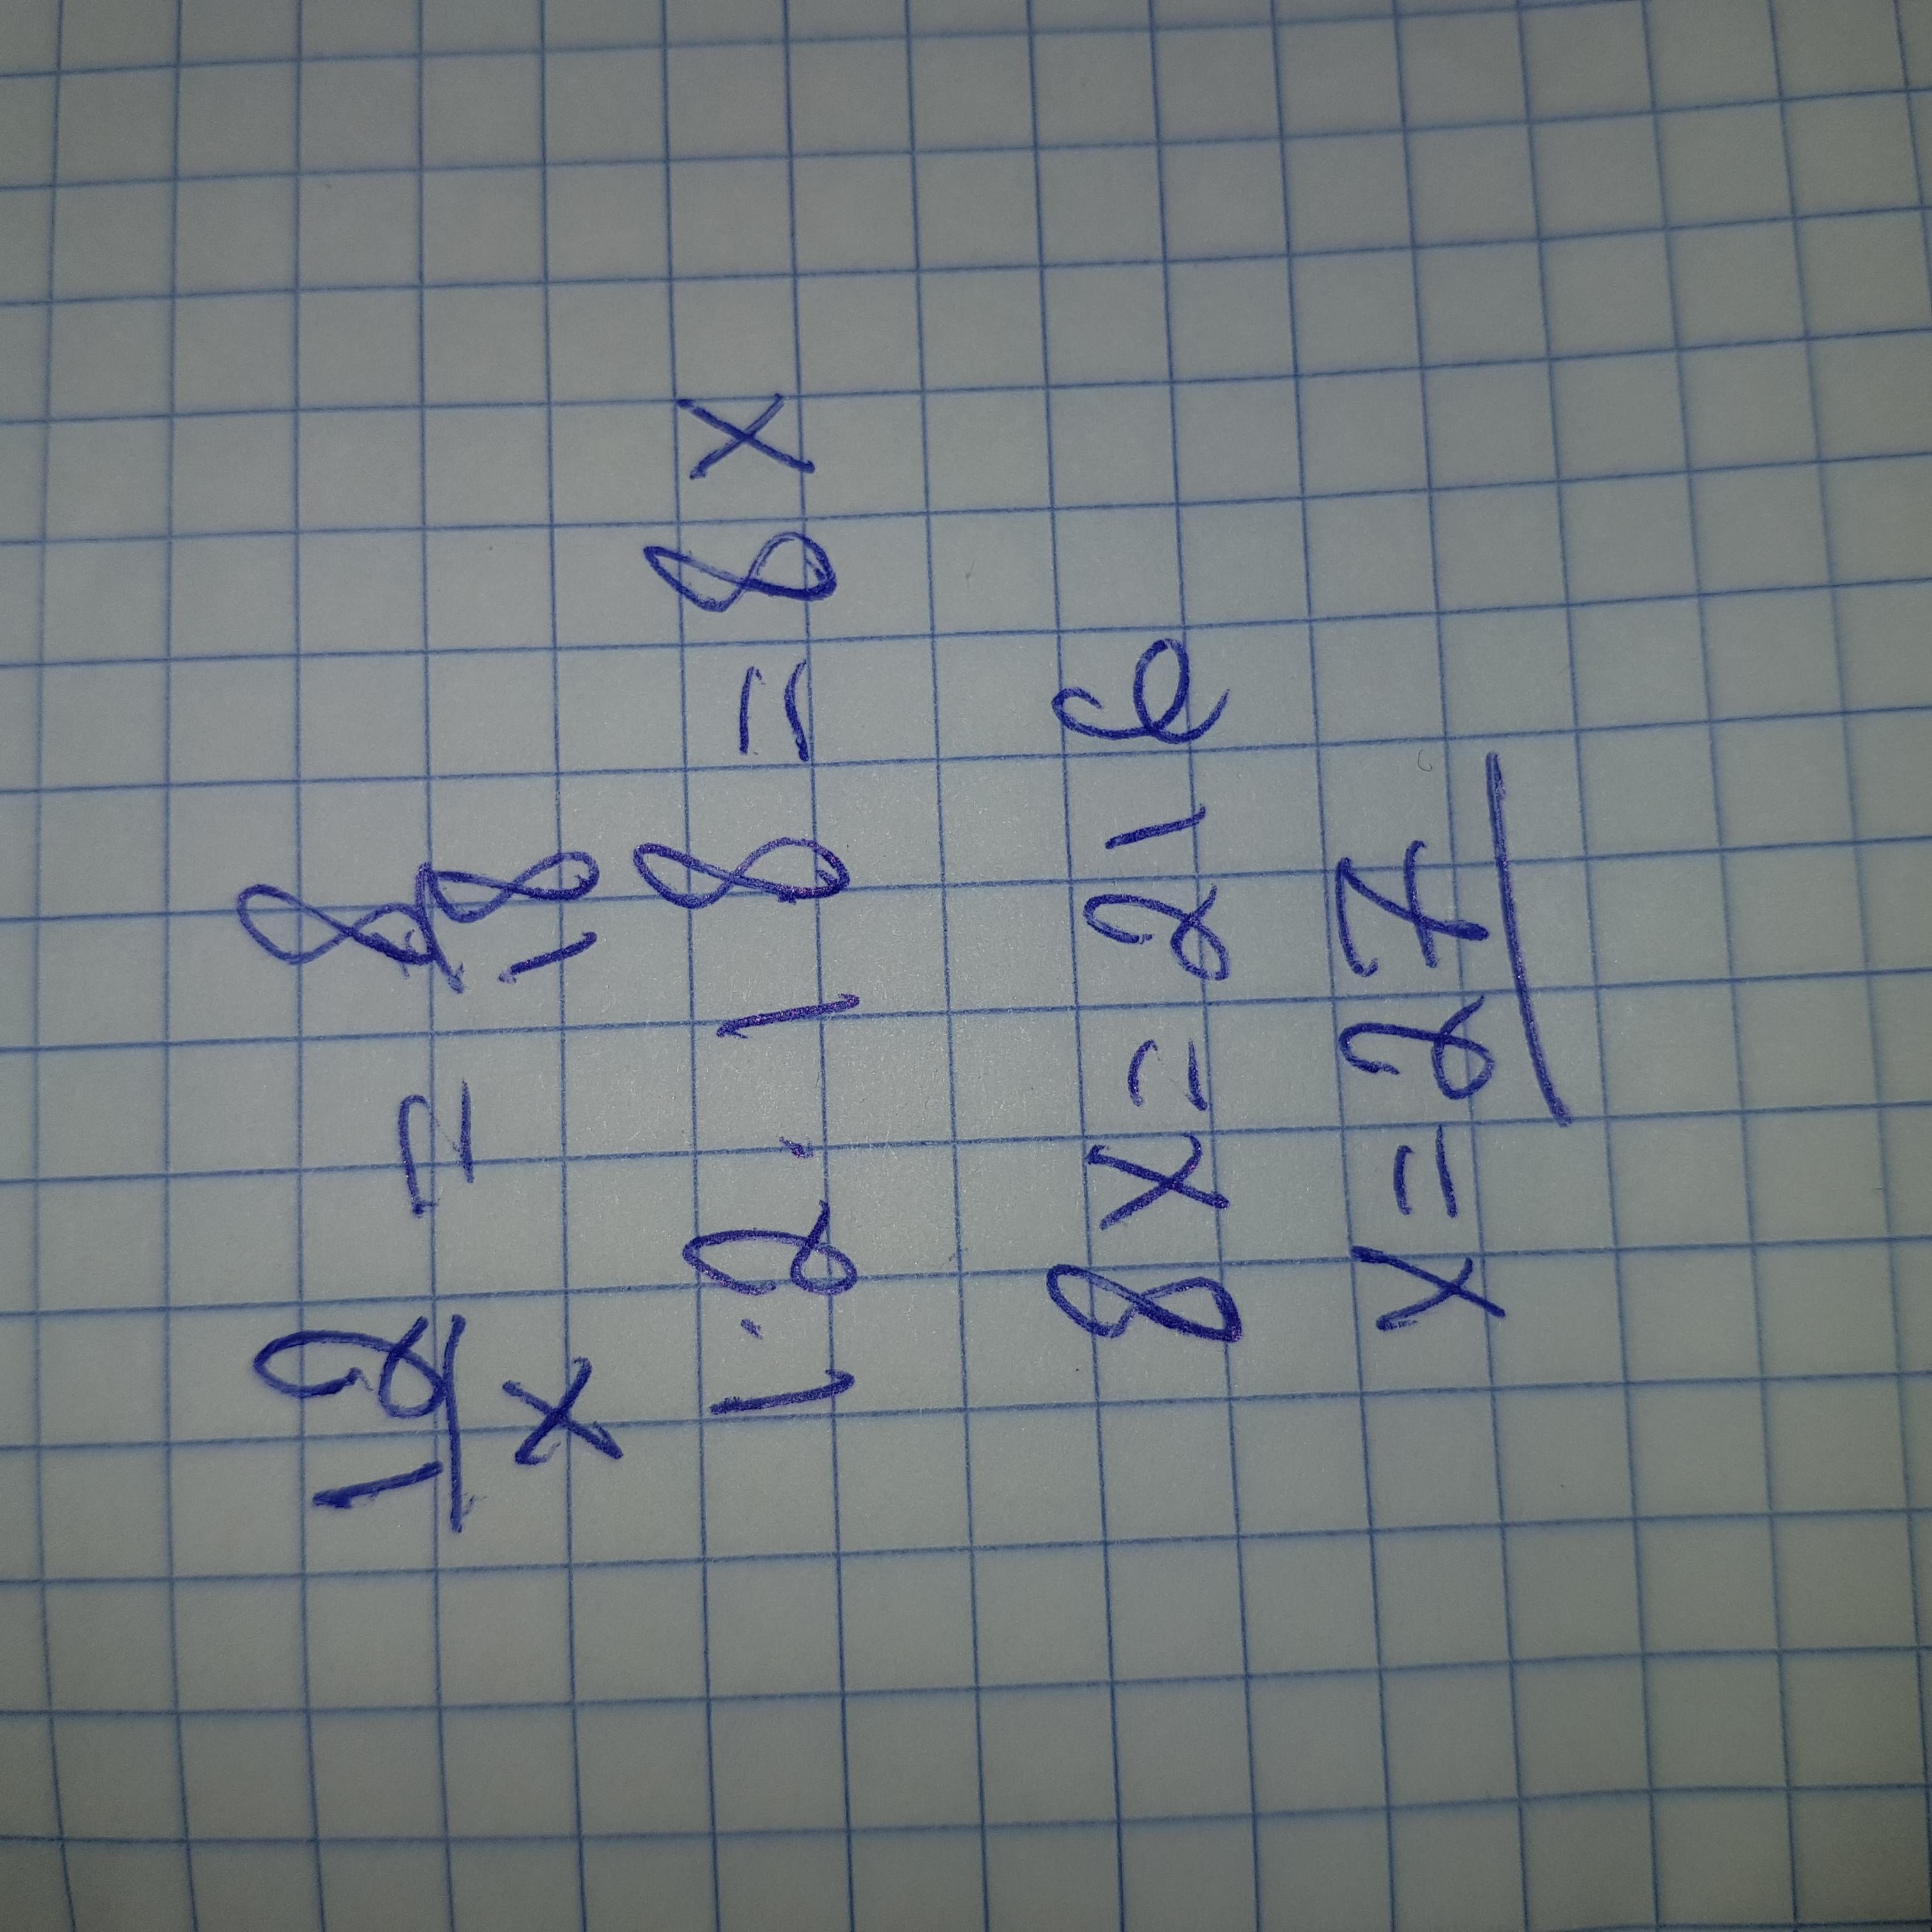 12/x = 8/18
1·2·18=8x
8x=216
x=27